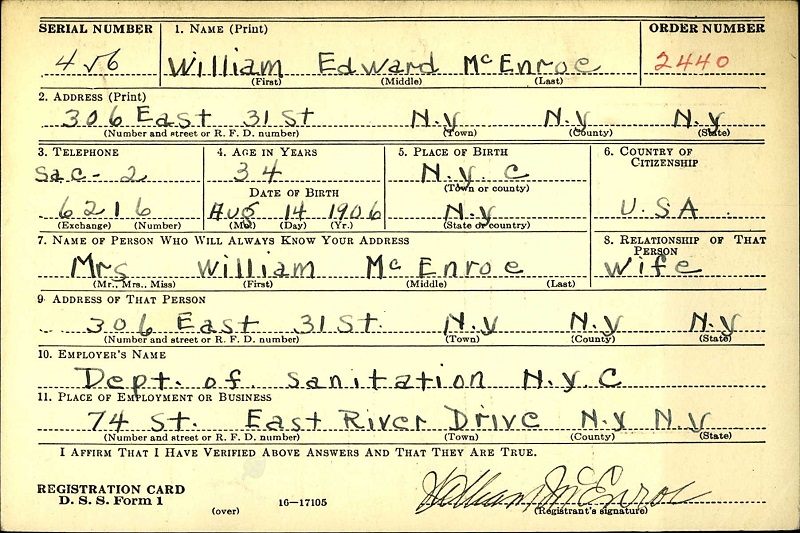 SERIAL NUMBER 1. NAME (Print) ORDER NUMBER
456 William Edward McEnroe 2440
(First) (Middle) (Last)
2. ADDRESS (Print)
306 East 31 St N.y N.y N.y
(Number and street or R. F. D. number) (Town) (County) (State)
3. TELEPHONE 4. AGE IN YEARS 5. PLACE OF BIRTH 6. COUNTRY OF CITIZENSHIP
Sac - 2 34 N.y. C
DATE OF BIRTH (Town or county)
6216 Aug 14 1906 N.y U.S A
(Exchange) (Number) (Mo.) (Day) (Yr.) (State or country)
7. NAME OF PERSON WHO WILL ALWAYS KNOW YOUR ADDRESS 8. RELATIONSHIP OF THAT PERSON
Mrs William Mc Enroe wife
(Mr., Mrs., Miss) (First) (Middle) (Last)
9. ADDRESS OF THAT PERSON
306 East 31 St. N.y N.y N.y
(Number and street or R. F. D. number) (Town) (County) (State)
10. EMPLOYER'S NAME
Dept. of Sanitation N.y. C
11. PLACE OF EMPLOYMENT OR BUSINESS
74 St. East River Drive N.y N.y
(Number and street or R. F. D. number) (Town) (County) (State)
I AFFIRM THAT I HAVE VERIFIED ABOVE ANSWERS AND THAT THEY ARE TRUE.
REGISTRATION CARD
D. S. S. Form 1 (over) 16-17105 William McEnroe
(Registrant's signature)